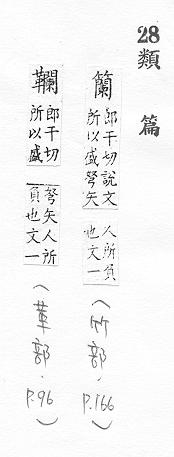 28類 篇
籣 郎干切説文所以盛弩矢人所負也文一 (竹部. P.166)
郎干切所以盛弩矢人所負也文一 (革部. P.96)